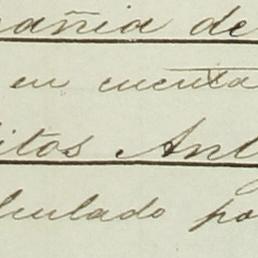 añia de
en cuenta
itos Ant
lculado po